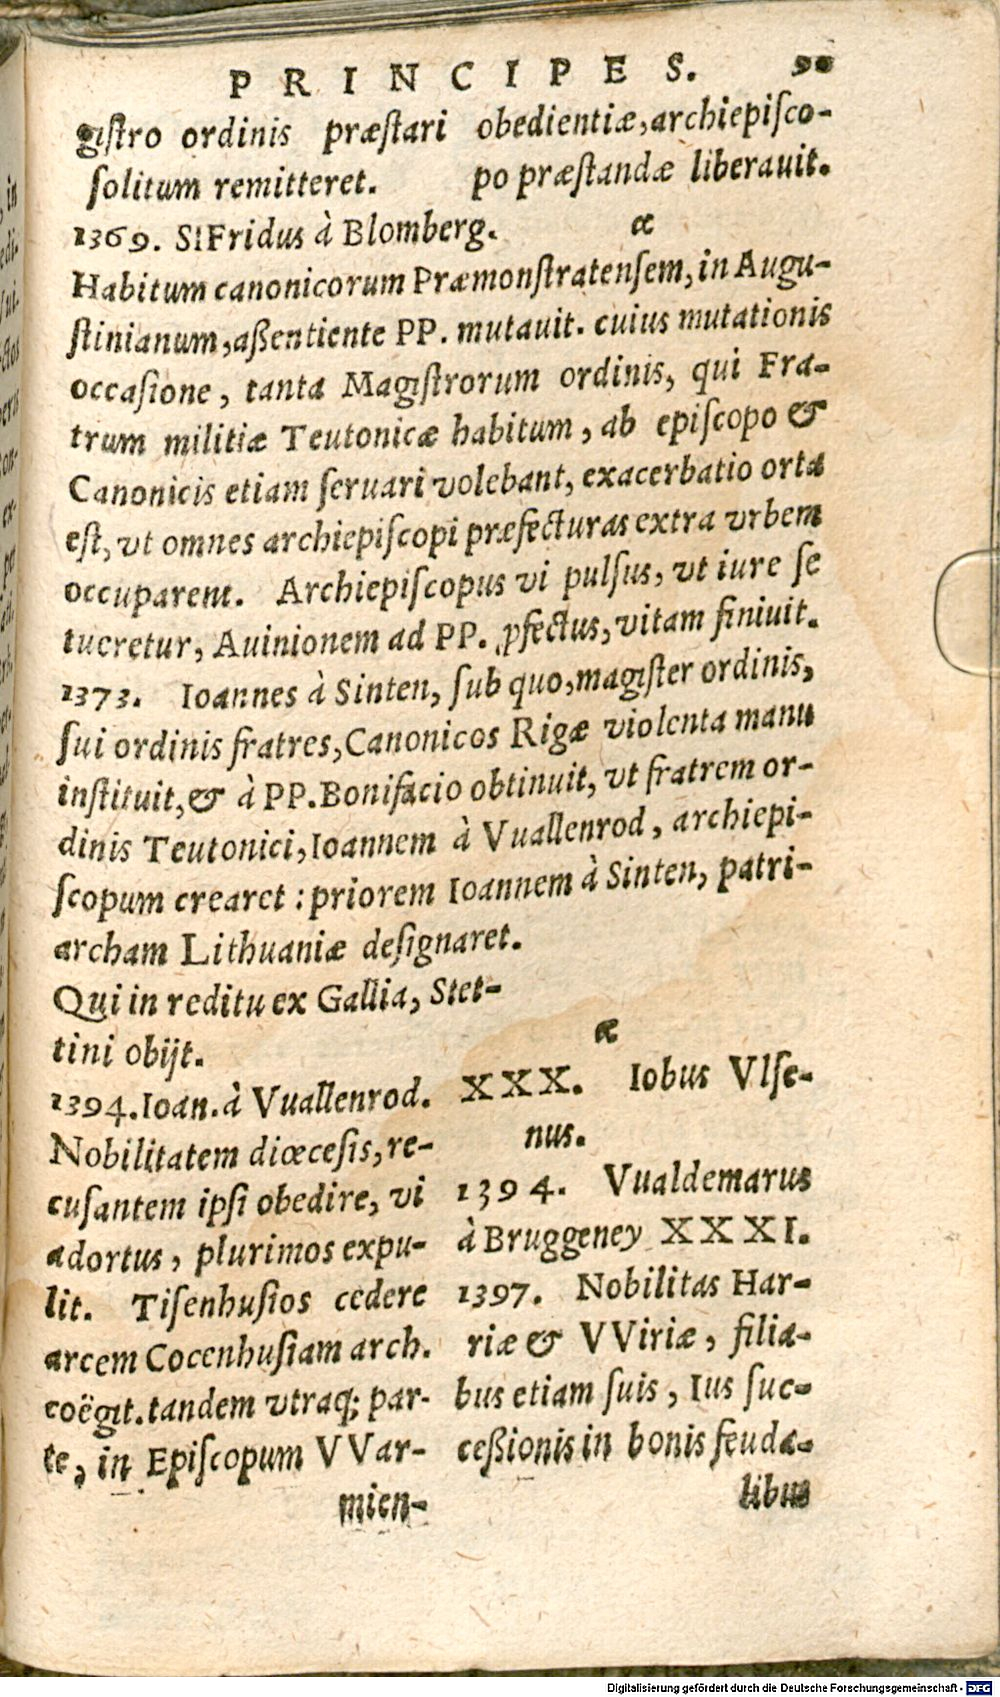 PRINCIPES. 90
gistro ordinis præstari
solitum remitteret.
obedientiæ, archiepisco-
po præstandæ liberauit.
æ
1369. SiFridus à Blomberg.
Habitum canonicorum Præmonstratensem, in Augu-
stinianum, aßentiente PP. mutauit. cuius mutationis
occasione, tanta Magistrorum ordinis, qui Fra-
trum militiæ Teutonicæ habitum, ab episcopo &
Canonicis etiam seruari volebant, exacerbatio orta
est, vt omnes archiepiscopi præfecturas extra vrbem
occuparent. Archiepiscopus vi pulsus, vt iure se
tueretur, Auinionem ad PP. ꝓfectus, vitam finiuit.
1373. Ioannes à Sinten, sub quo, magister ordinis,
sui ordinis fratres, Canonicos Rigæ violenta manu
instituit, & à PP. Bonifacio obtinuit, vt fratrem or-
dinis Teutonici, Ioannem à Vuallenrod, archiepi-
scopum crearet : priorem Ioannem à Sinten, patri-
archam Lithuaniæ designaret.
Qui in reditu ex Gallia, Stet-
tini obijt.
1394. Ioan. à Vuallenrod.
Nobilitatem diœcesis, re-
cusantem ipsi obedire, vi
adortus, plurimos expu-
lit. Tisenhusios cedere
arcem Cocenhusiam arch.
coëgit. tandem vtraq; par-
te, in Episcopum VVar-
mien-
æ
XXX. Iobus Vlse-
nus.
1394. Vualdemarus
à Bruggeney XXXI.
1397. Nobilitas Har-
riæ & VViriæ, filia-
bus etiam suis, Ius suc-
ceßionis in bonis feuda-
libus
Digitalisierung gefördert durch die Deutsche Forschungsgemeinschaft - DFG